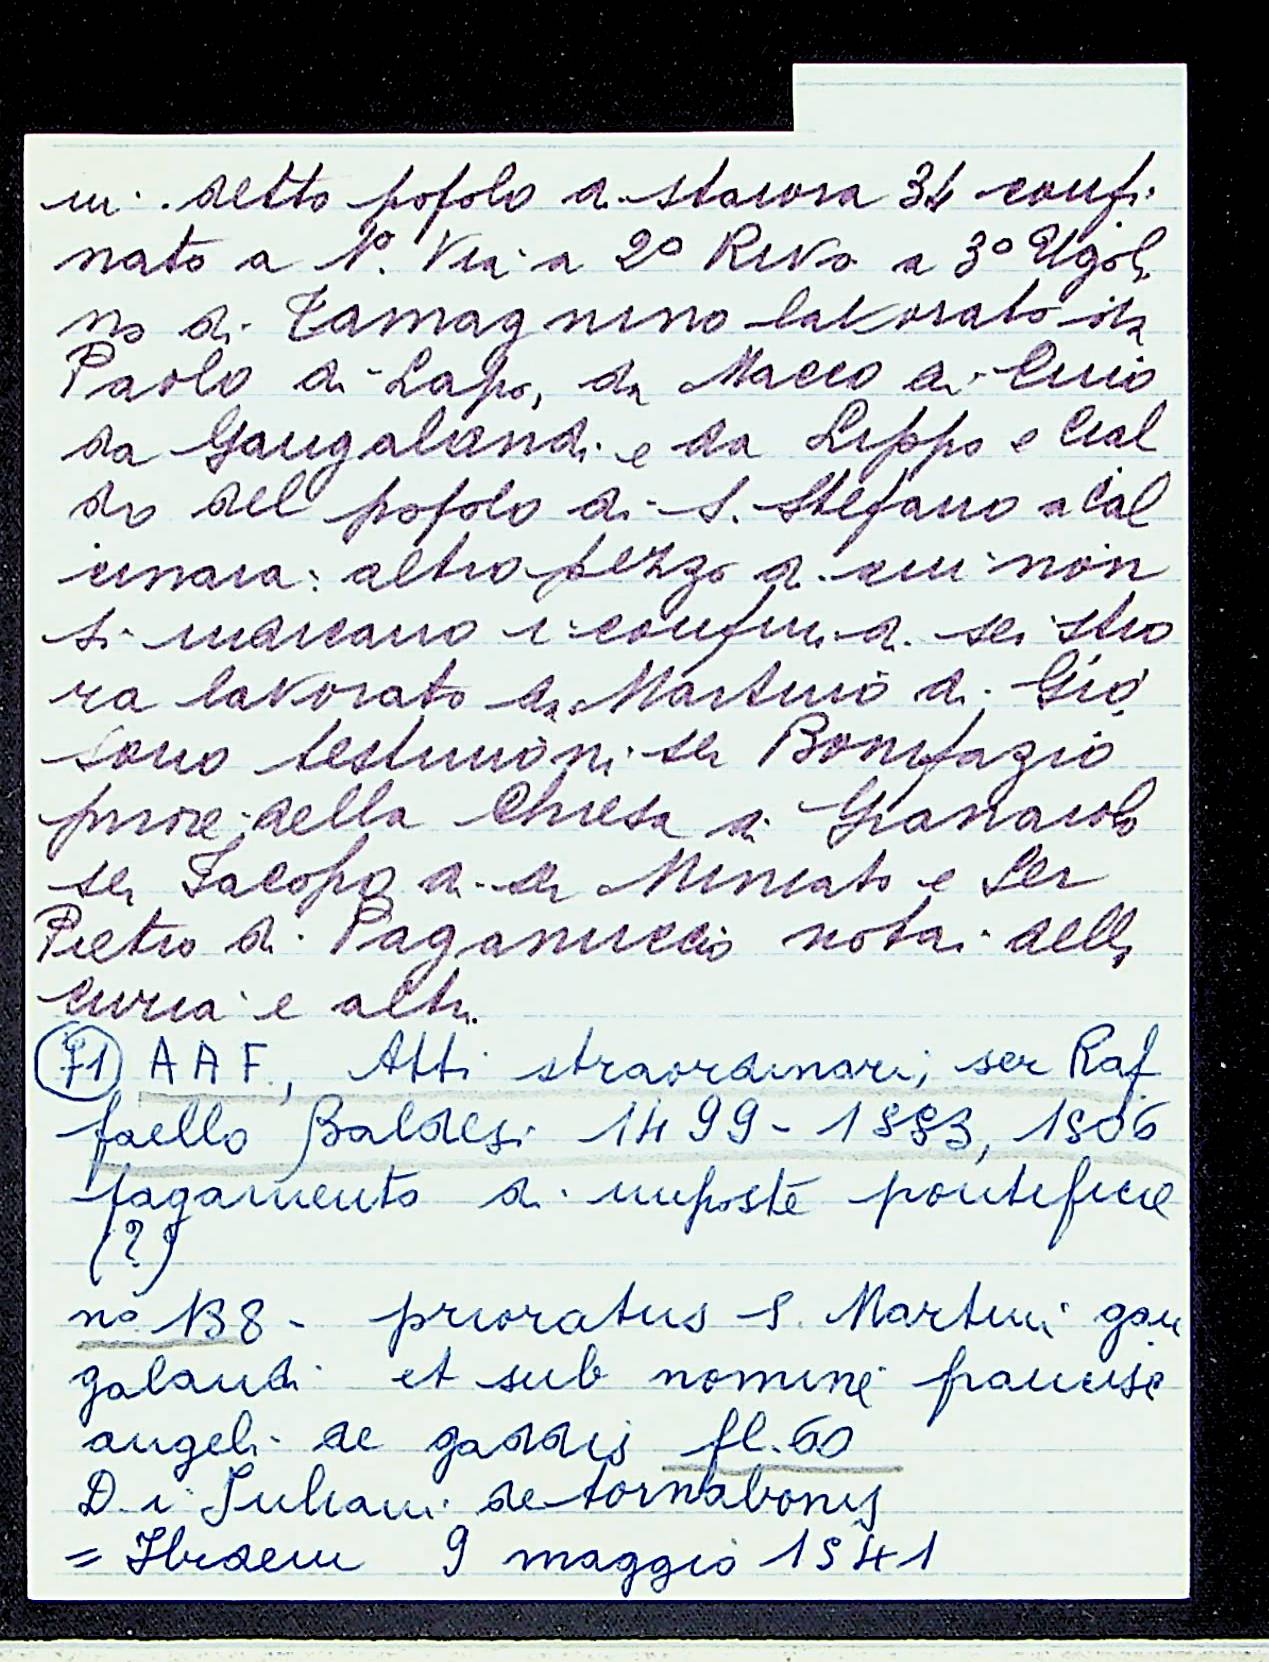 in detto popolo di staiora 34 confi
nato a 1º. Via a 2º Rivo a 3º Ugoli
no di Tamagnino lavorato da
Paolo di Lapo, da Macco di Cino
da Gangalandi e da Lippo e Cial
do del popolo di S. Stefano a Cal
cinaia: altro pezzo di cui non
si indicano i confini di sei stio
ra lavorato da Martino di Gio
sono testimoni ser Bonifazio
priore della Chiesa di Granaiolo
ser Jacopo di ser Miniato e Ser
Pietro di Paganuccio notai della
curia e altri.
71 A A F., Atti straordinari, ser Raf
faello Baldesi 1499-1553, 1506
pagamento di imposte pontificie
(?)
nº 138 - prioratus S. Martini gan
galandi et sub nomine francisci
angeli de gaddis fl. 60
D. i Juliani de tornabonis
= Ibidem 9 maggio 1541